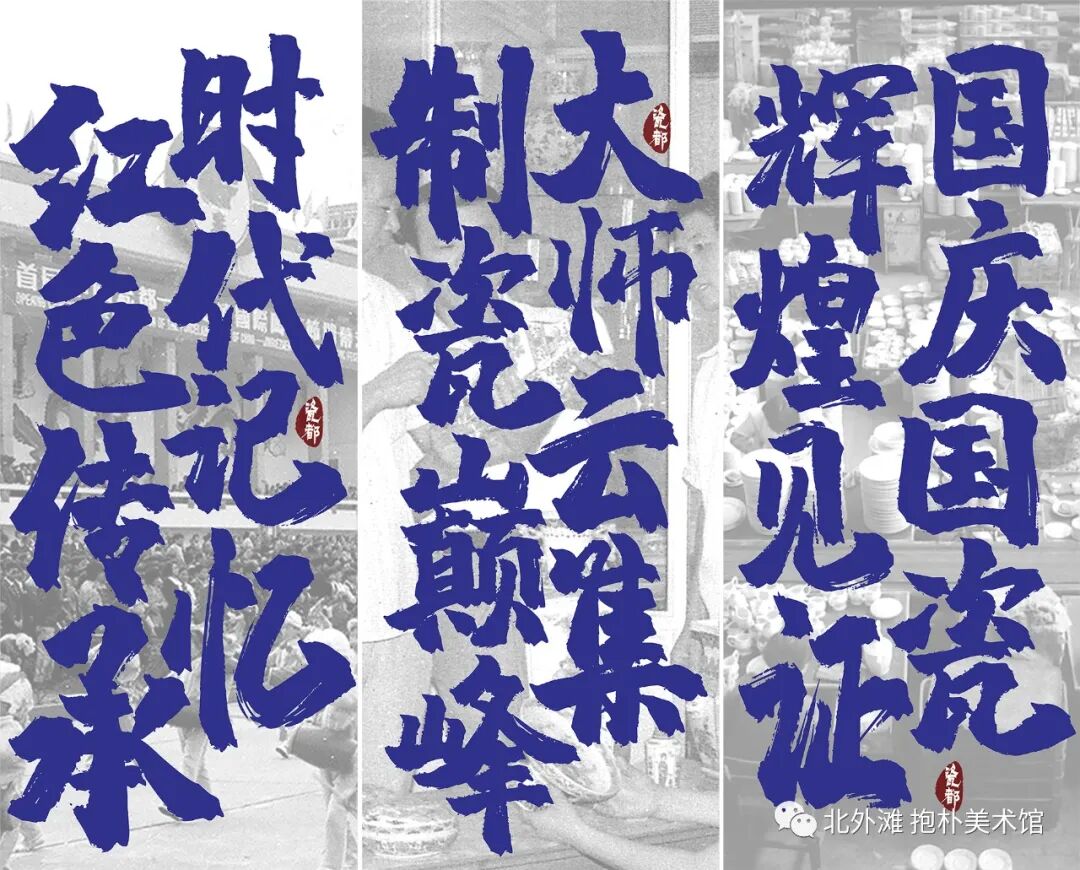 国庆国瓷
辉煌见证
瓷都
大师云集
制瓷巅峰
瓷都
时代记忆
红色传承
瓷都
北外滩 抱朴美术馆